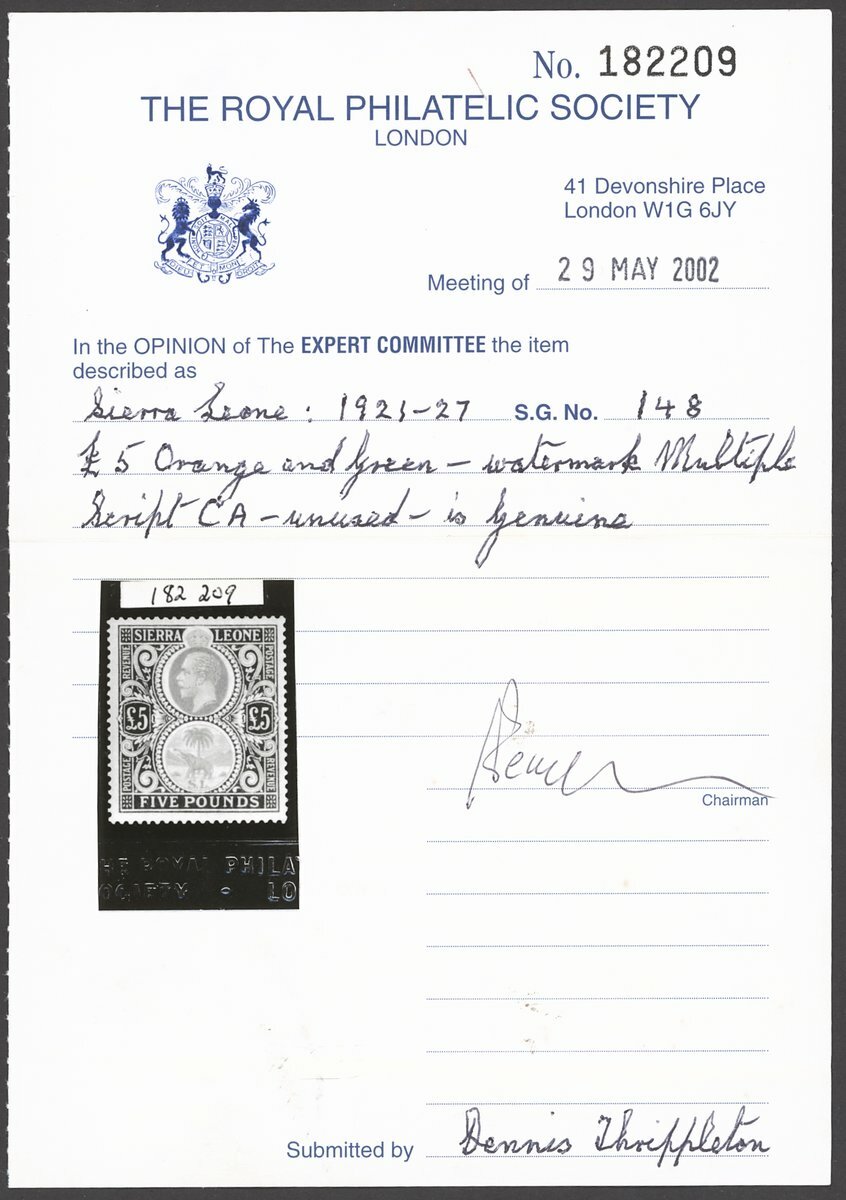 No. 182209
THE ROYAL PHILATELIC SOCIETY
LONDON
41 Devonshire Place
London W1G 6JY
Meeting of 29 MAY 2002
In the OPINION of The EXPERT COMMITTEE the item
described as
Sierra Leone : 1921-27 S.G. No. 148
£5 Orange and Green - watermark Multiple
Script CA - unused - is genuine
182 209
SIERRA LEONE
REVENUE POSTAGE
£5 £5
POSTAGE REVENUE
FIVE POUNDS
HE ROYAL PHILA
OCIETY - LO
Chairman
Submitted by Dennis Thrippleton